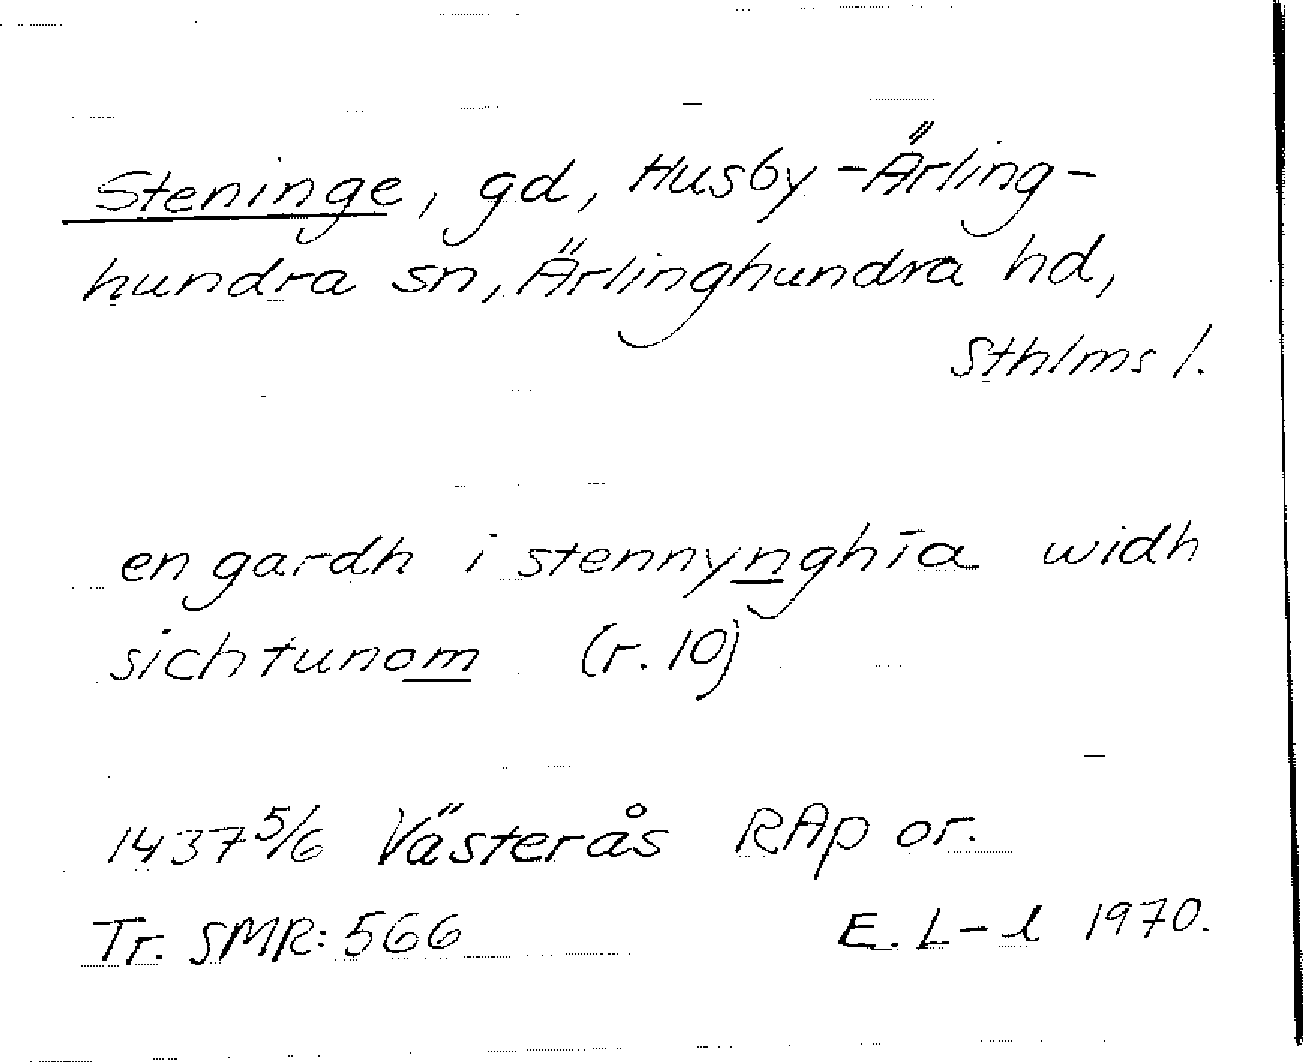 Steninge, gd, Husby-Ärling-
hundra sn, Ärlinghundra hd,
Sthlms l.
en gardh i stennynghia widh
sichtunom (r. 10)
1437 5/6 Västerås RAp or.
Tr. SMR: 566 E. L-l 1970.